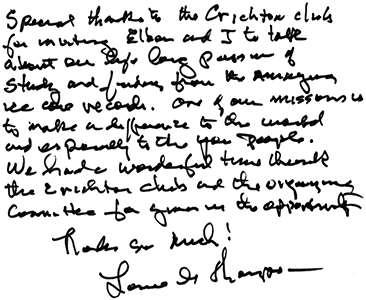 Special thanks to the Crichton club
for inviting Ellen and I to talk
about our life long passion of
Study and findings from the
ice core records. One of our missions is
to make a difference to the world
and especially to the young people.
We had a wonderful time thank
the Crichton club and the organizing
Committee for given us the opportunity
Thanks so much!